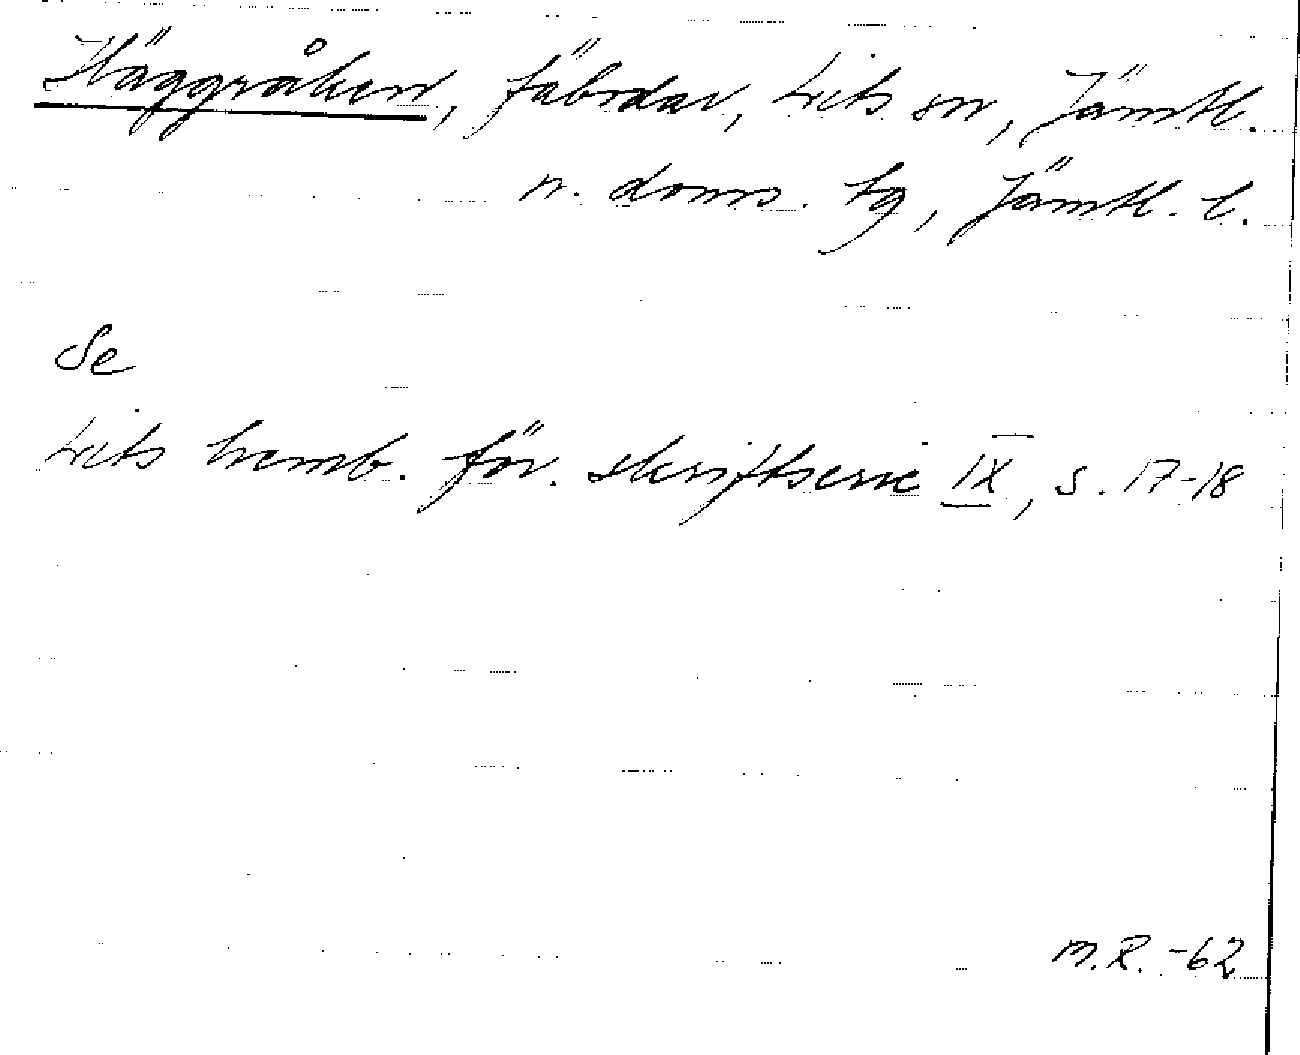 Häggråken, fäbodar, Lits sn, Jämtl.
n. doms. tg, Jämtl. l.
Se
Lits hemb. för. skriftserie IX, s. 17-18
M.R. -62